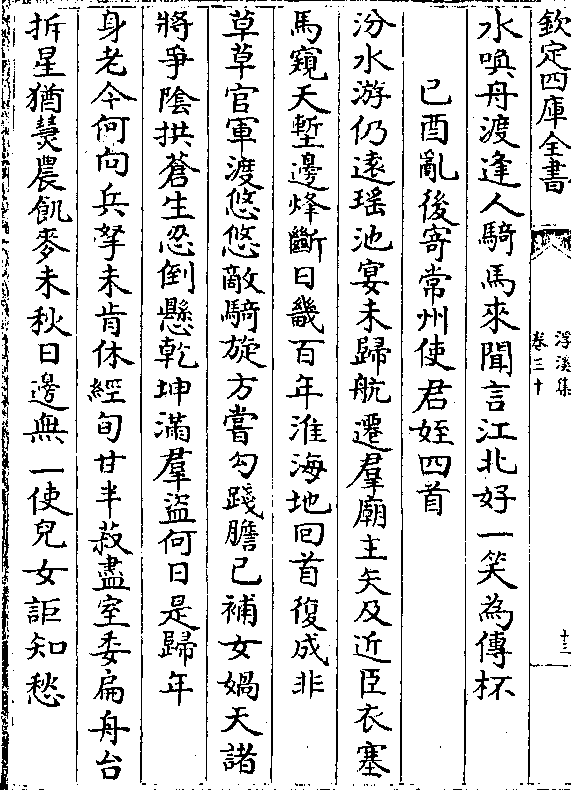 欽定四庫全書
浮溪集
卷三十
十三
水喚舟渡逢人騎馬來聞言江北好一笑為傳杯
己酉亂後寄常州使君姪四首
汾水游仍逺瑶池宴未歸航遷羣廟主矢及近臣衣塞
馬窺天塹邊烽斷日畿百年淮海地回首復成非
草草官軍渡悠悠敵騎旋方嘗勾踐膽已補女媧天諸
將爭陰拱蒼生忍倒懸乾坤滿羣盜何日是歸年
身老今何向兵拏未肯休經旬甘半菽盡室委扁舟台
拆星猶彗農飢麥未秋日邊無一使兒女詎知愁